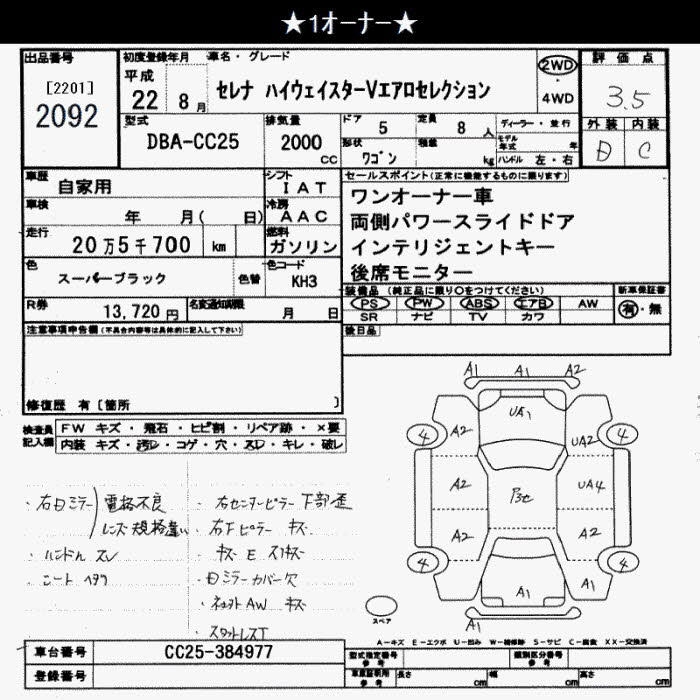 ★1オーナー★
出品番号
[2201]
2092
初度登録年月
平成
22 8月
車名・グレード
セレナ ハイウェイスターVエアロセレクション
2WD
・
4WD
評価点
3.5
外装 内装
D C
型式
DBA-CC25
排気量
2000
cc
ドア 5
定員 8 人
形状 ワゴン
積載 kg
ディーラー・並行
モデル年式 年
ハンドル 左・右
車歴
自家用
シフト
IAT
車検
年 月( 日)
冷房
AAC
走行
20万5千700 km
燃料
ガソリン
色
スーパーブラック
色替
色コード
KH3
R券
13,720円
名変通知期限
月 日
セールスポイント(正常に機能するものに限ります)
ワンオーナー車
両側パワースライドドア
インテリジェントキー
後席モニター
装備品(純正品に限り○をつけてください)
PS PW ABS エアB AW
SR ナビ TV カワ
新車保証書
有・無
後日品
注意事項申告欄(不具合内容等は具体的に記入して下さい)
修復歴 有〔箇所 〕
検査員
記入欄
FW キズ・飛石・ヒビ割・リペア跡・×要
内装 キズ・汚レ・コゲ・穴・スレ・キレ・破レ
・右Dミラー 電格不良
レンズ規格違い
・ハンドル スレ
・シート ヘタリ
・右センターピラー 下部歪
・右Fピラー キズ
・キズ E
・Dミラーカバー欠
AW キズ
・スタッドレスT
A1 A1 A2
UA1
4 A2 UA2 4
A2 UA4
A2 A2
4 A1 4
A1 A1
スペア
A-キズ E-エクボ U-凹み W-補修跡 S-サビ C-腐食 XX-交換済
車台番号
CC25-384977
登録番号
型式指定番号
参考
類別区分番号
参考
車庫証明用
参考
長さ cm
幅 cm
高さ cm